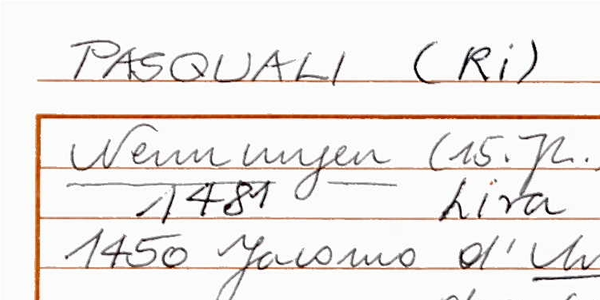 PASQUALI (Ri)
Nennungen (15. Jh.)
1481 Lira
1450 Jacomo d'